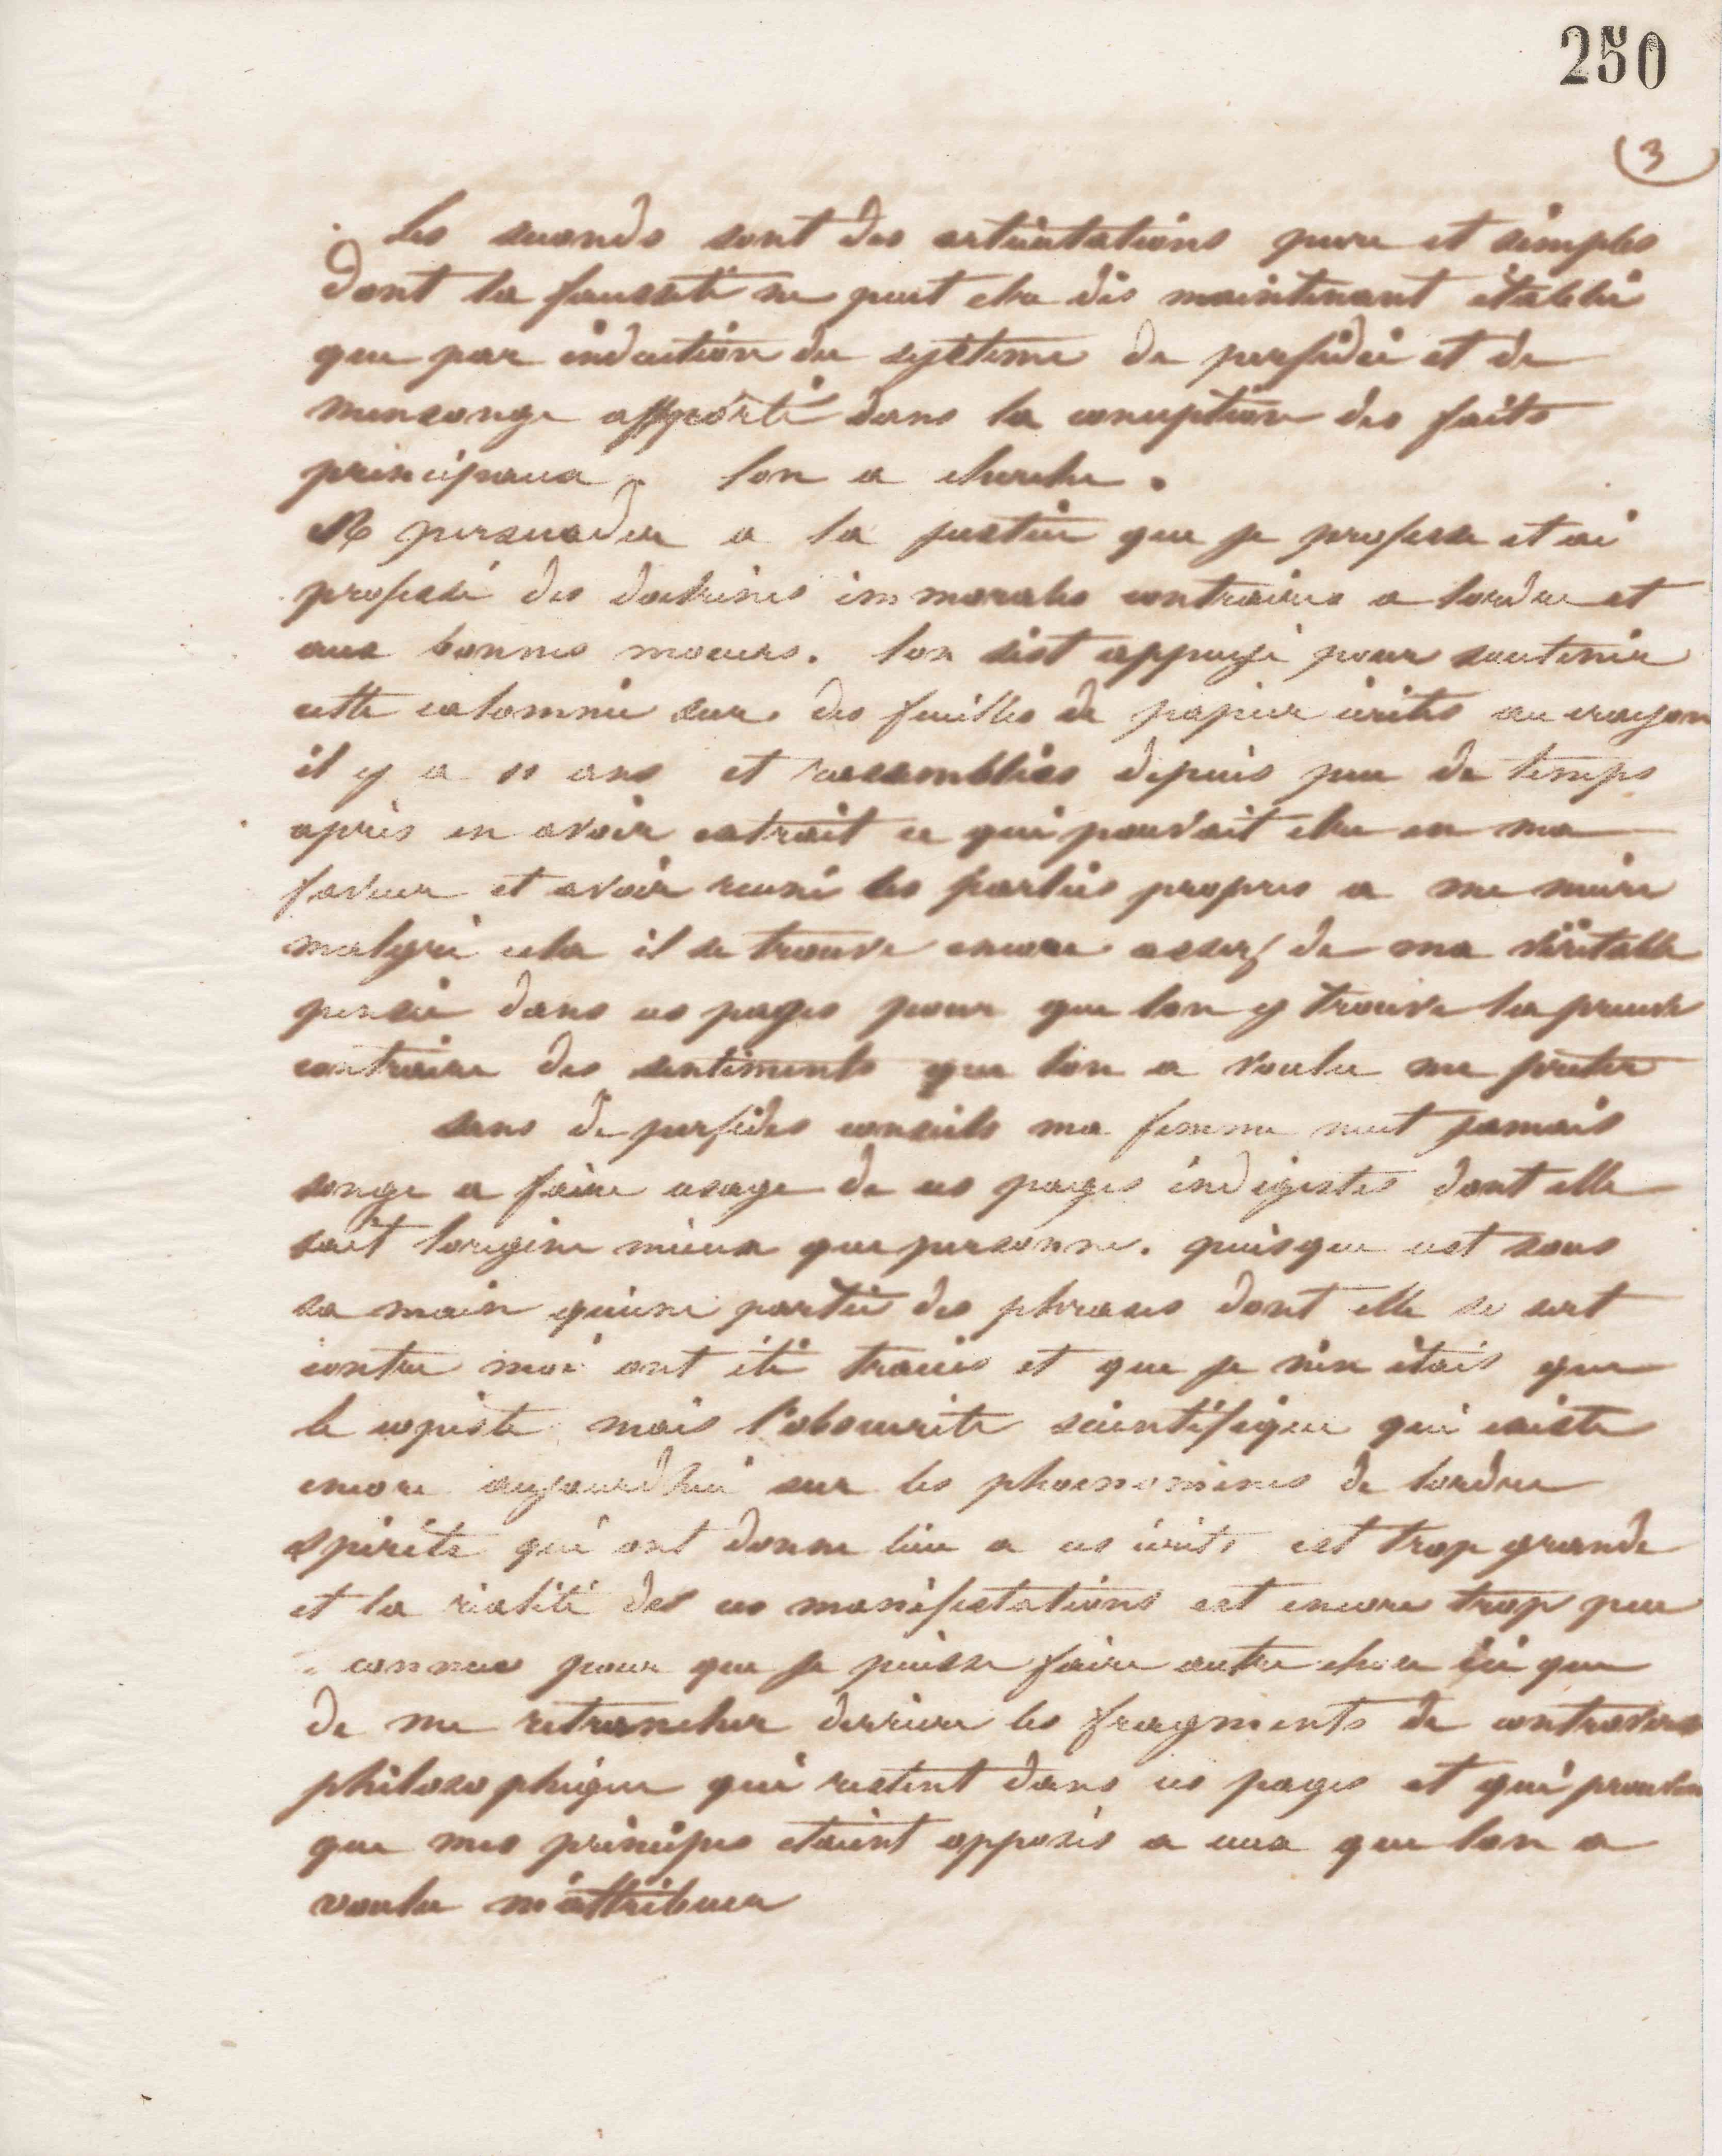 250
3
Les seconds sont des articulations pure et simples
dont la fausseté ne peut etre dès maintenant établie
que par induction du système de perfidie et de
mensonge apporté dans la conception des faits
principaux. lon a cherche.
A persuader a la justice que je professe et ai
professé des doctrines immorales contraires a lordre et
aux bonnes moeurs. lon sest appuyé pour soutenir
cette calomnie sur des feuilles de papier écrites au crayon
il y a 11 ans et rassemblées depuis peu de temps
après en avoir extrait ce qui pouvait etre en ma
faveur et avoir reuni les parties propres a me nuire
malgré cela il se trouve encore assez de ma véritable
pensée dans ces pages pour que lon y trouve la preuve
contraire des sentiments que lon a voulu me preter
sans de perfides conseils ma femme neut jamais
songe a faire usage de ces pages indigestes dont elle
sait lorigine mieux que personne. puisque cest sous
sa main quune partie des phrases dont elle se sert
contre moi ont été tracées et que je nen étais que
le copiste mais l'obscurite scientifique qui existe
encore aujourdhui sur les phoenomènes de lordre
spirite qui ont donne lieu a ces écrits est trop grande
et la réalité des ces manifestations est encore trop peu
connue pour que je puisse faire autre chose ici que
de me retrancher derriere les fragments de controverse
philosophique qui restent dans ces pages et qui prouvent
que mes principes etaient opposés a ceux que lon a
voulu m'attribuer